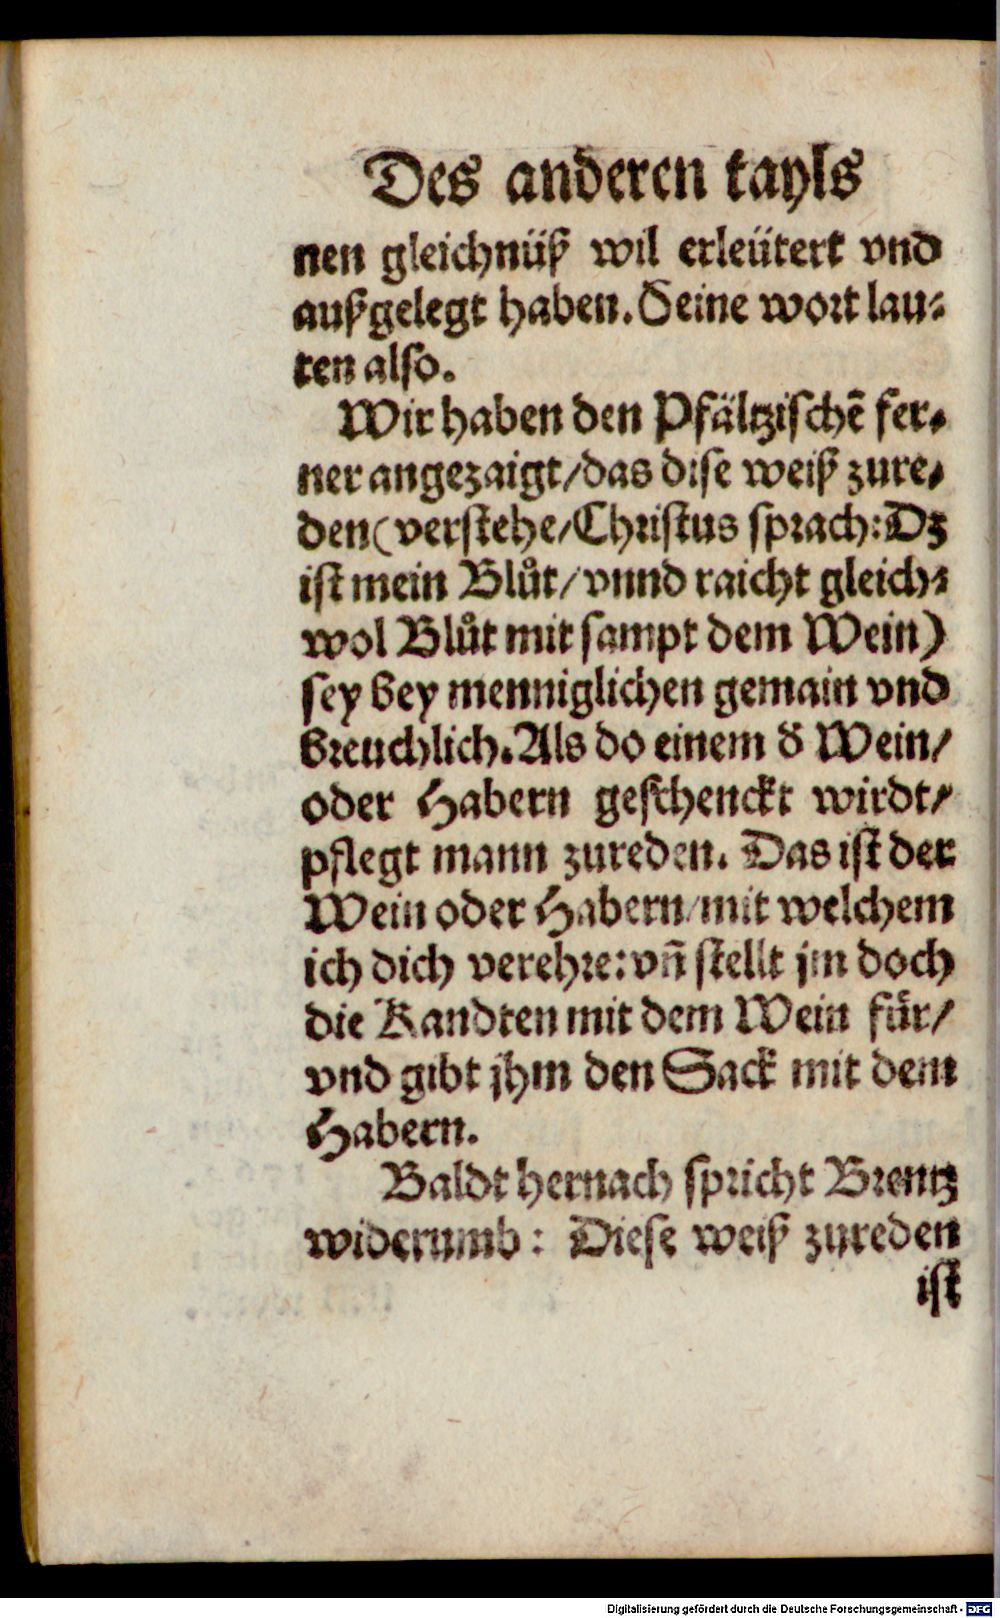 Des anderen tayls
nen gleichnüß wil erleütert vnd
außgelegt haben. Seine wort lau⸗
ten also.
Wir haben den Pfältzischē fer⸗
ner angezaigt/das dise weiß zure⸗
den(verstehe/Christus sprach: Dz
ist mein Blůt/vnnd raicht gleich⸗
wol Blůt mit sampt dem Wein)
sey bey menniglichen gemain vnd
breuchlich. Als do einem d̕ Wein/
oder Habern geschenckt wirdt/
pflegt mann zureden. Das ist der
Wein oder Habern/mit welchem
ich dich verehre: vñ stellt jm doch
die Kandten mit dem Wein für/
vnd gibt jhm den Sack mit dem
Habern.
Baldt hernach spricht Brentz
widerumb: Diese weiß zureden
ist
Digitalisierung gefördert durch die Deutsche Forschungsgemeinschaft - DFG